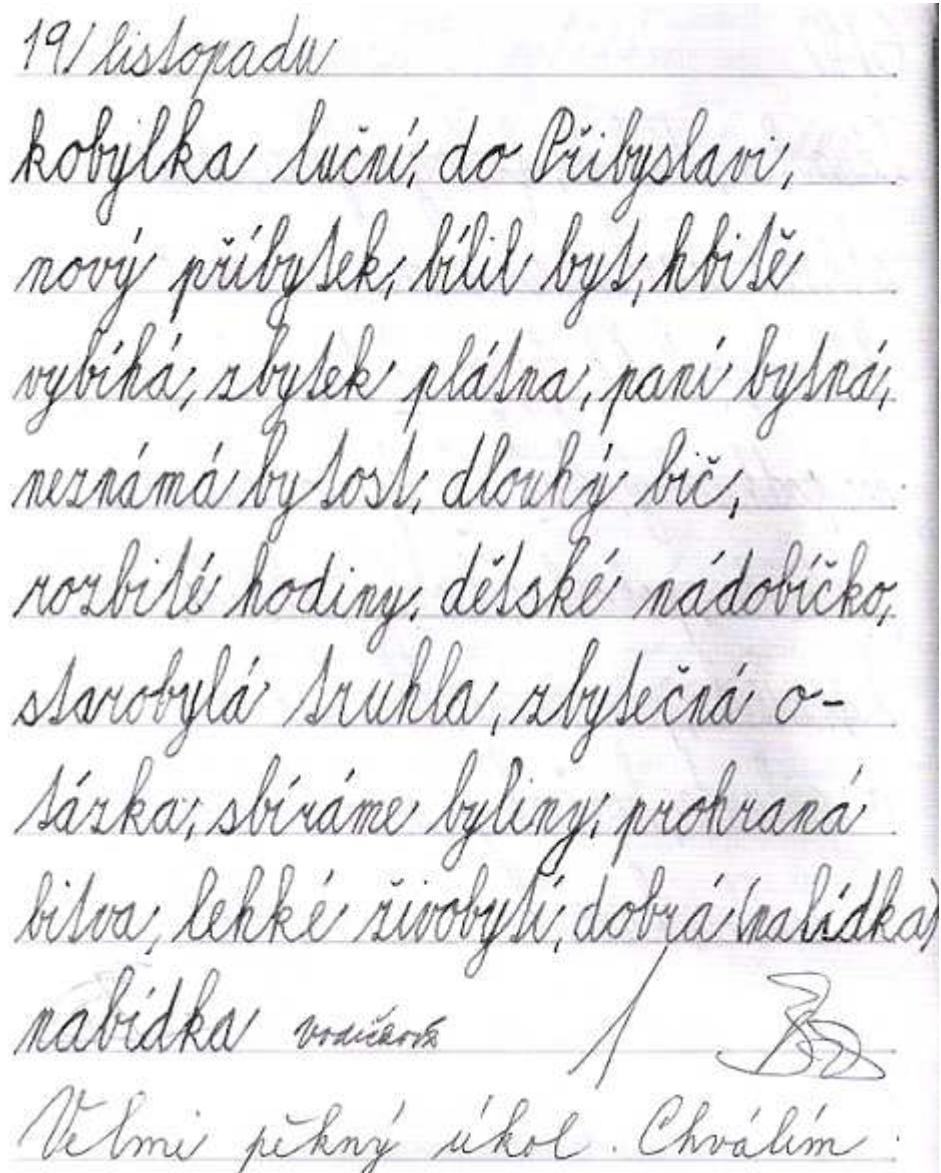 19. listopadu
kobylka luční, do Přibyslavi,
nový příbytek, bílil byt, hbitě
vybíhá, zbytek plátna, paní bytná,
neznámá bytost, dlouhý bič,
rozbité hodiny, dětské nádobíčko,
starobylá truhla, zbytečná o-
tázka, sbíráme byliny, prohraná
bitva, lehké živobytí, dobrá (nabídka)
nabídka 1
Velmi pěkný úkol. Chválím